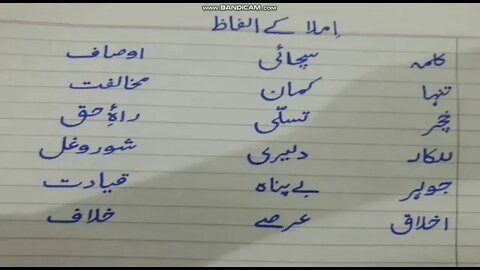 www.BANDICAM.com
اِملا کے الفاظ
کلمہ سچائی اوصاف
تنہا کمان مخالفت
خچر تسلّی راہِ حق
للکار دلیری شوروغل
جوہر بے پناہ قیادت
اخلاق عرصے خلاف